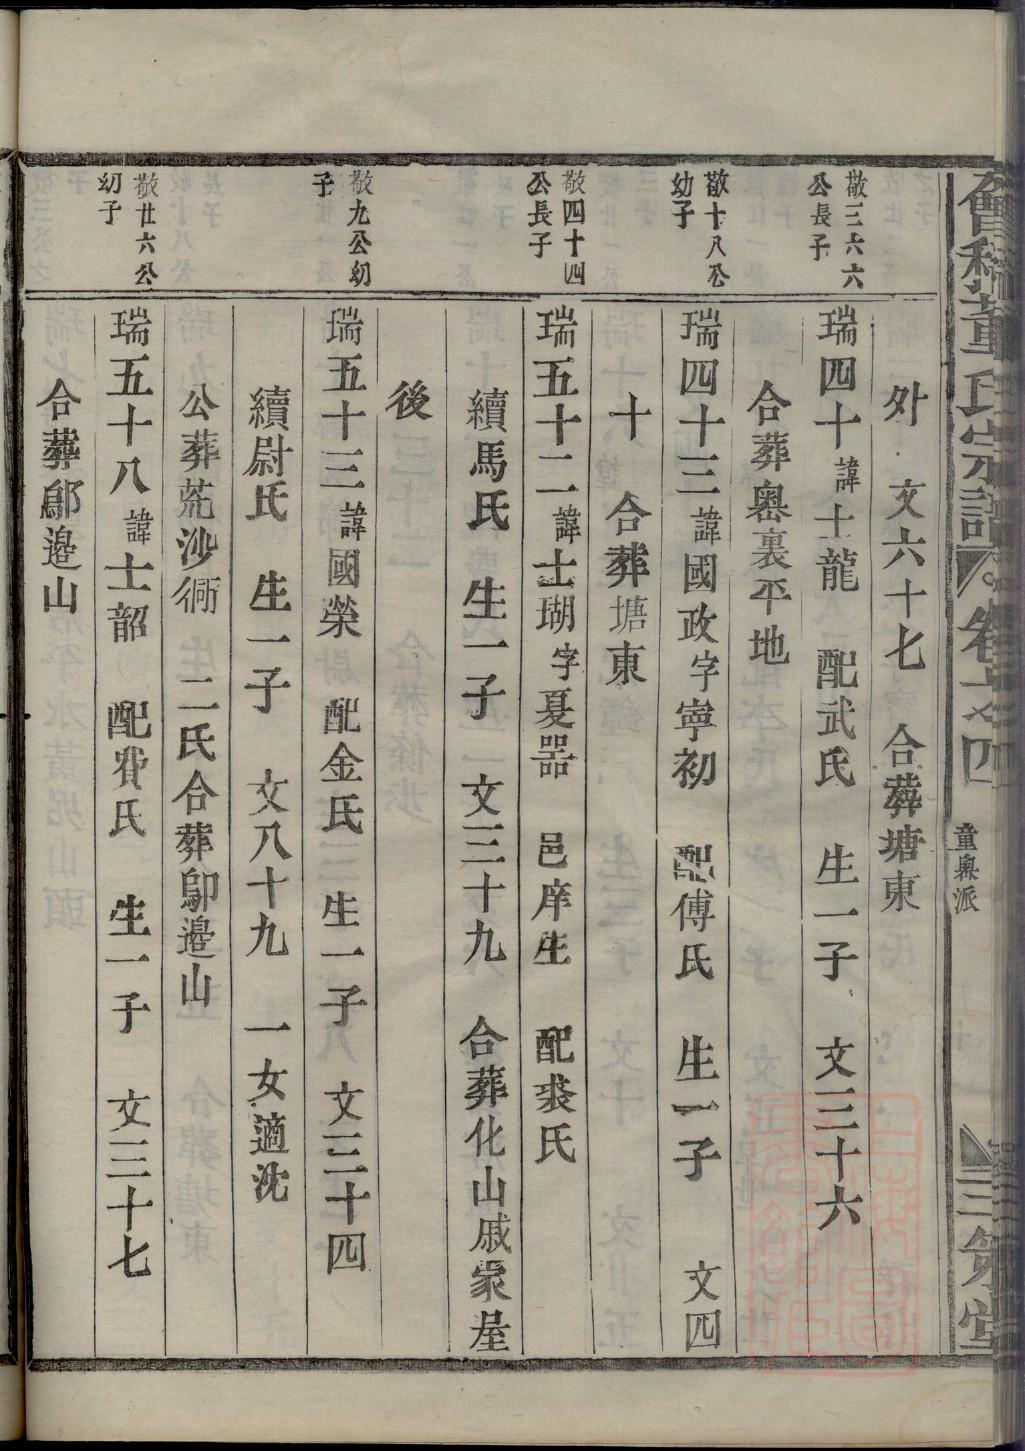 會稽董氏宗譜 卷十四 童奧派 三策堂
外 文六十七 合葬塘東
敬三六六公長子
瑞四十諱士龍 配武氏 生一子 文三十六
合葬奧裏平地
敬十八公幼子
瑞四十三諱國政字寧初 配傅氏 生一子 文四
十 合葬塘東
敬四十四公長子
瑞五十二諱士瑚字夏器 邑庠生 配裘氏
續馬氏 生一子 文三十九 合葬化山戚家屋
後
敬九公幼子
瑞五十三諱國榮 配金氏 生一子 文三十四
續尉氏 生一子 文八十九 一女適沈
公葬茺沙衕 二氏合葬鄔邉山
敬廿六公幼子
瑞五十八諱士韶 配費氏 生一子 文三十七
合葬鄔邉山